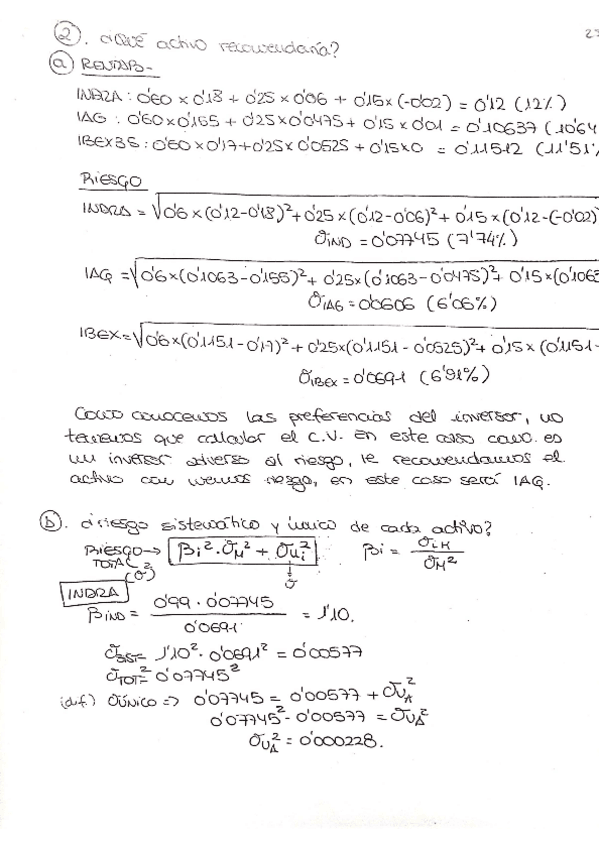 2
②. ¿Qué activo recomendaría?
ⓐ RENTAB.-
INDRA: 0'60 x 0'18 + 0'25 x 0'06 + 0'15 x (-0'02) = 0'12 (12%)
IAG : 0'60 x 0'155 + 0'25 x 0'0475 + 0'15 x 0'01 = 0'10637 (10'64
IBEX35: 0'60 x 0'17 + 0'25 x 0'0525 + 0'15 x 0 = 0'11512 (11'51%
RIESGO
INDRA = √0'6 x (0'12-0'18)² + 0'25 x (0'12-0'06)² + 0'15 x (0'12-(-0'02)
σIND = 0'07745 (7'74%)
IAG = √0'6 x (0'1063-0'155)² + 0'25 x (0'1063-0'0475)² + 0'15 x (0'1063
σIAG = 0'0606 (6'06%)
IBEX = √0'6 x (0'1151-0'17)² + 0'25 x (0'1151-0'0525)² + 0'15 x (0'1151-
σIBEX = 0'0691 (6'91%)
Como conocemos las preferencias del inversor, no
tenemos que calcular el C.V. En este caso como es
un inversor adverso al riesgo, le recomendamos el
activo con menos riesgo, en este caso será IAG.
ⓑ. ¿riesgo sistemático y único de cada activo?
RIESGO TOTAL (σ²) → βi² · σM² + σui² βi = σiM / σM²
INDRA
βIND = 0'99 · 0'07745 / 0'0691 = 1'10.
σSIST = 1'10² · 0'0691² = 0'00577
σTOT² = 0'07745²
(dif.) σúnico => 0'07745 = 0'00577 + σUA²
0'07745² - 0'00577 = σUA²
σUA² = 0'000228.